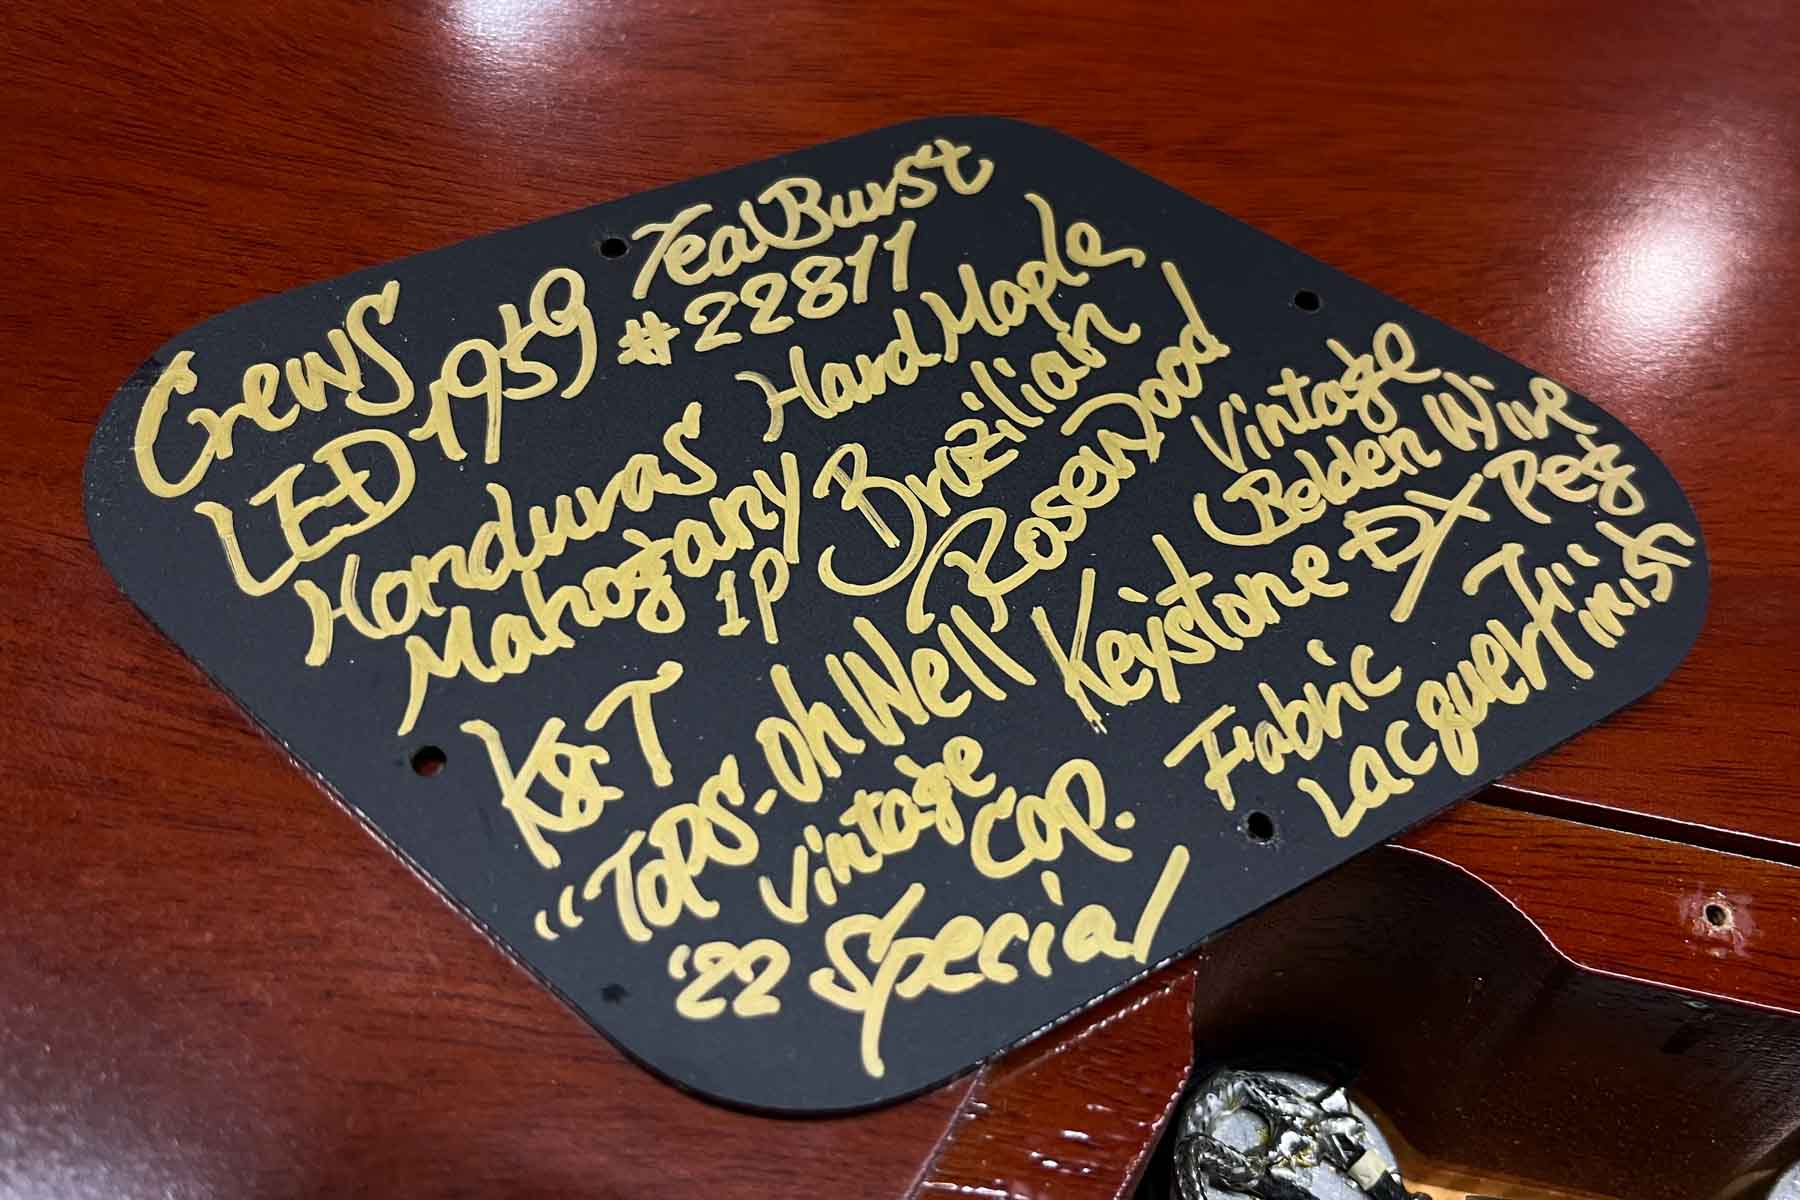 Crews
LED 1959
TealBurst
#22811
Honduras
Mahogany
1P
Hard Maple
Brazilian
Rosewood
K&T
"TOPS-Oh Well"
Vintage
Cap.
'22 Special
Vintage
Belden Wire
Keystone DX Peg
Fabric
Lacquer Finish